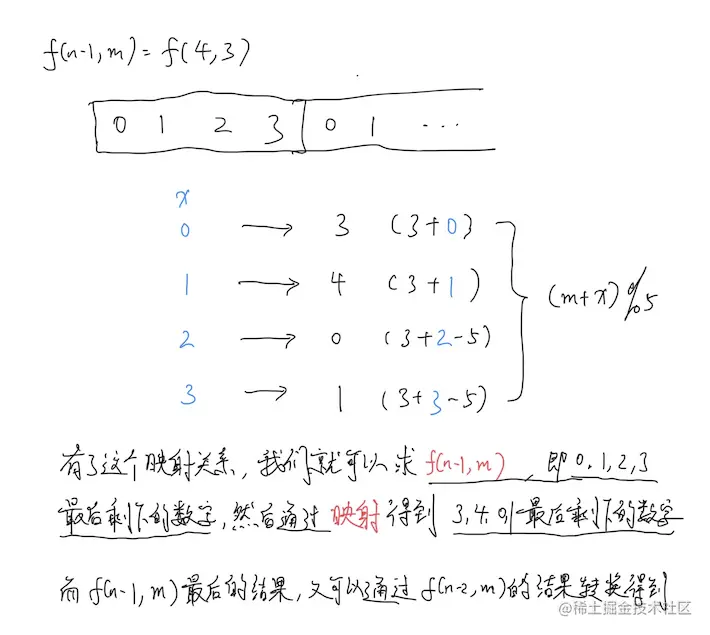 f(n-1,m) = f(4,3)
0 1 2 3 0 1 ...
x
0 → 3 (3+0)
1 → 4 (3+1)
(m+x)%5
2 → 0 (3+2-5)
3 → 1 (3+3-5)
有了这个映射关系,我们就可以求 f(n-1,m),即0,1,2,3
最后剩下的数字,然后通过映射得到 3,4,0,1最后剩下的数字
而 f(n-1,m)最后的结果,又可以通过 f(n-2,m)的结果转换得到
@稀土掘金技术社区